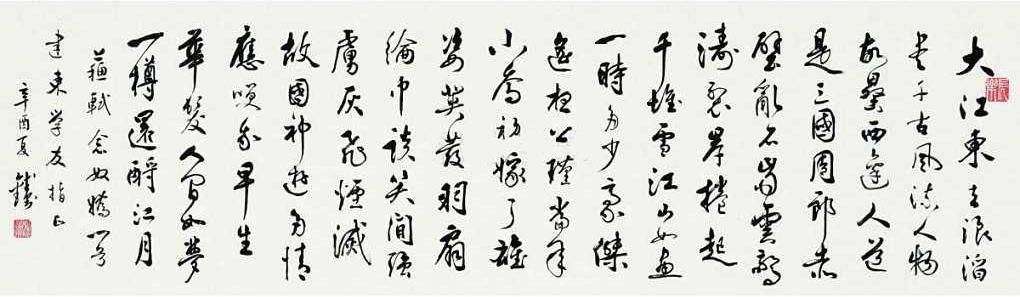 大江東去浪淘
盡千古風流人物
故壘西邊人道
是三國周郎赤
壁亂石崩雲驚
濤裂岸捲起
千堆雪江山如畫
一時多少豪傑
遙想公瑾當年
小喬初嫁了雄
姿英發羽扇
綸巾談笑間強
虜灰飛煙滅
故國神遊多情
應笑我早生
華髮人間如夢
一樽還酹江月
蘇軾念奴嬌
建東学友指正
辛酉夏